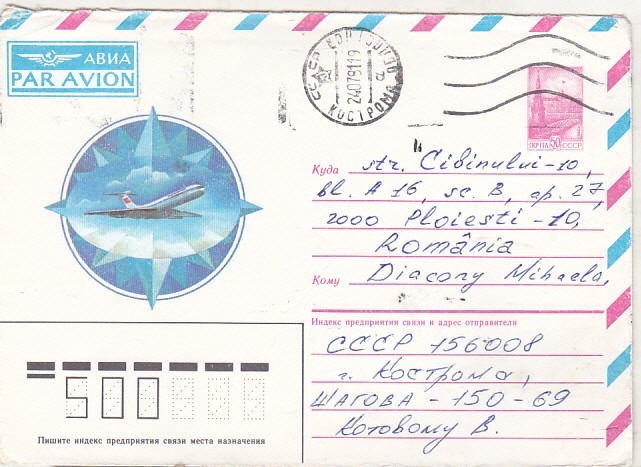 АВИА
PAR AVION
СССР
КОСТРОМА
ПОЧТА СССР
Куда str. Cibinului-10,
bl. A 16, sc. B, ap. 27,
2000 Ploiesti - 10,
România
Кому Diacony Mihaela,
Индекс предприятия связи и адрес отправителя
СССР 156008
г. Кострома,
ШАГОВА - 150 - 69
Котовому В.
500
Пишите индекс предприятия связи места назначения